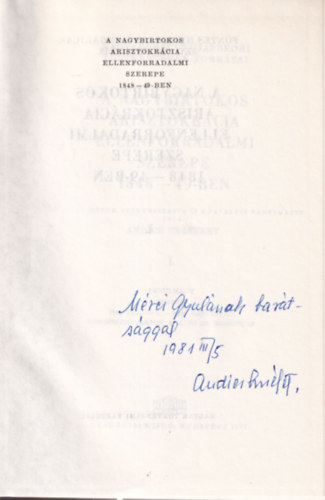 A NAGYBIRTOKOS
ARISZTOKRÁCIA
ELLENFORRADALMI
SZEREPE
1848—49-BEN
Mérei Gyulának barát-
sággal
1981 III/5
Andics Erzsébet